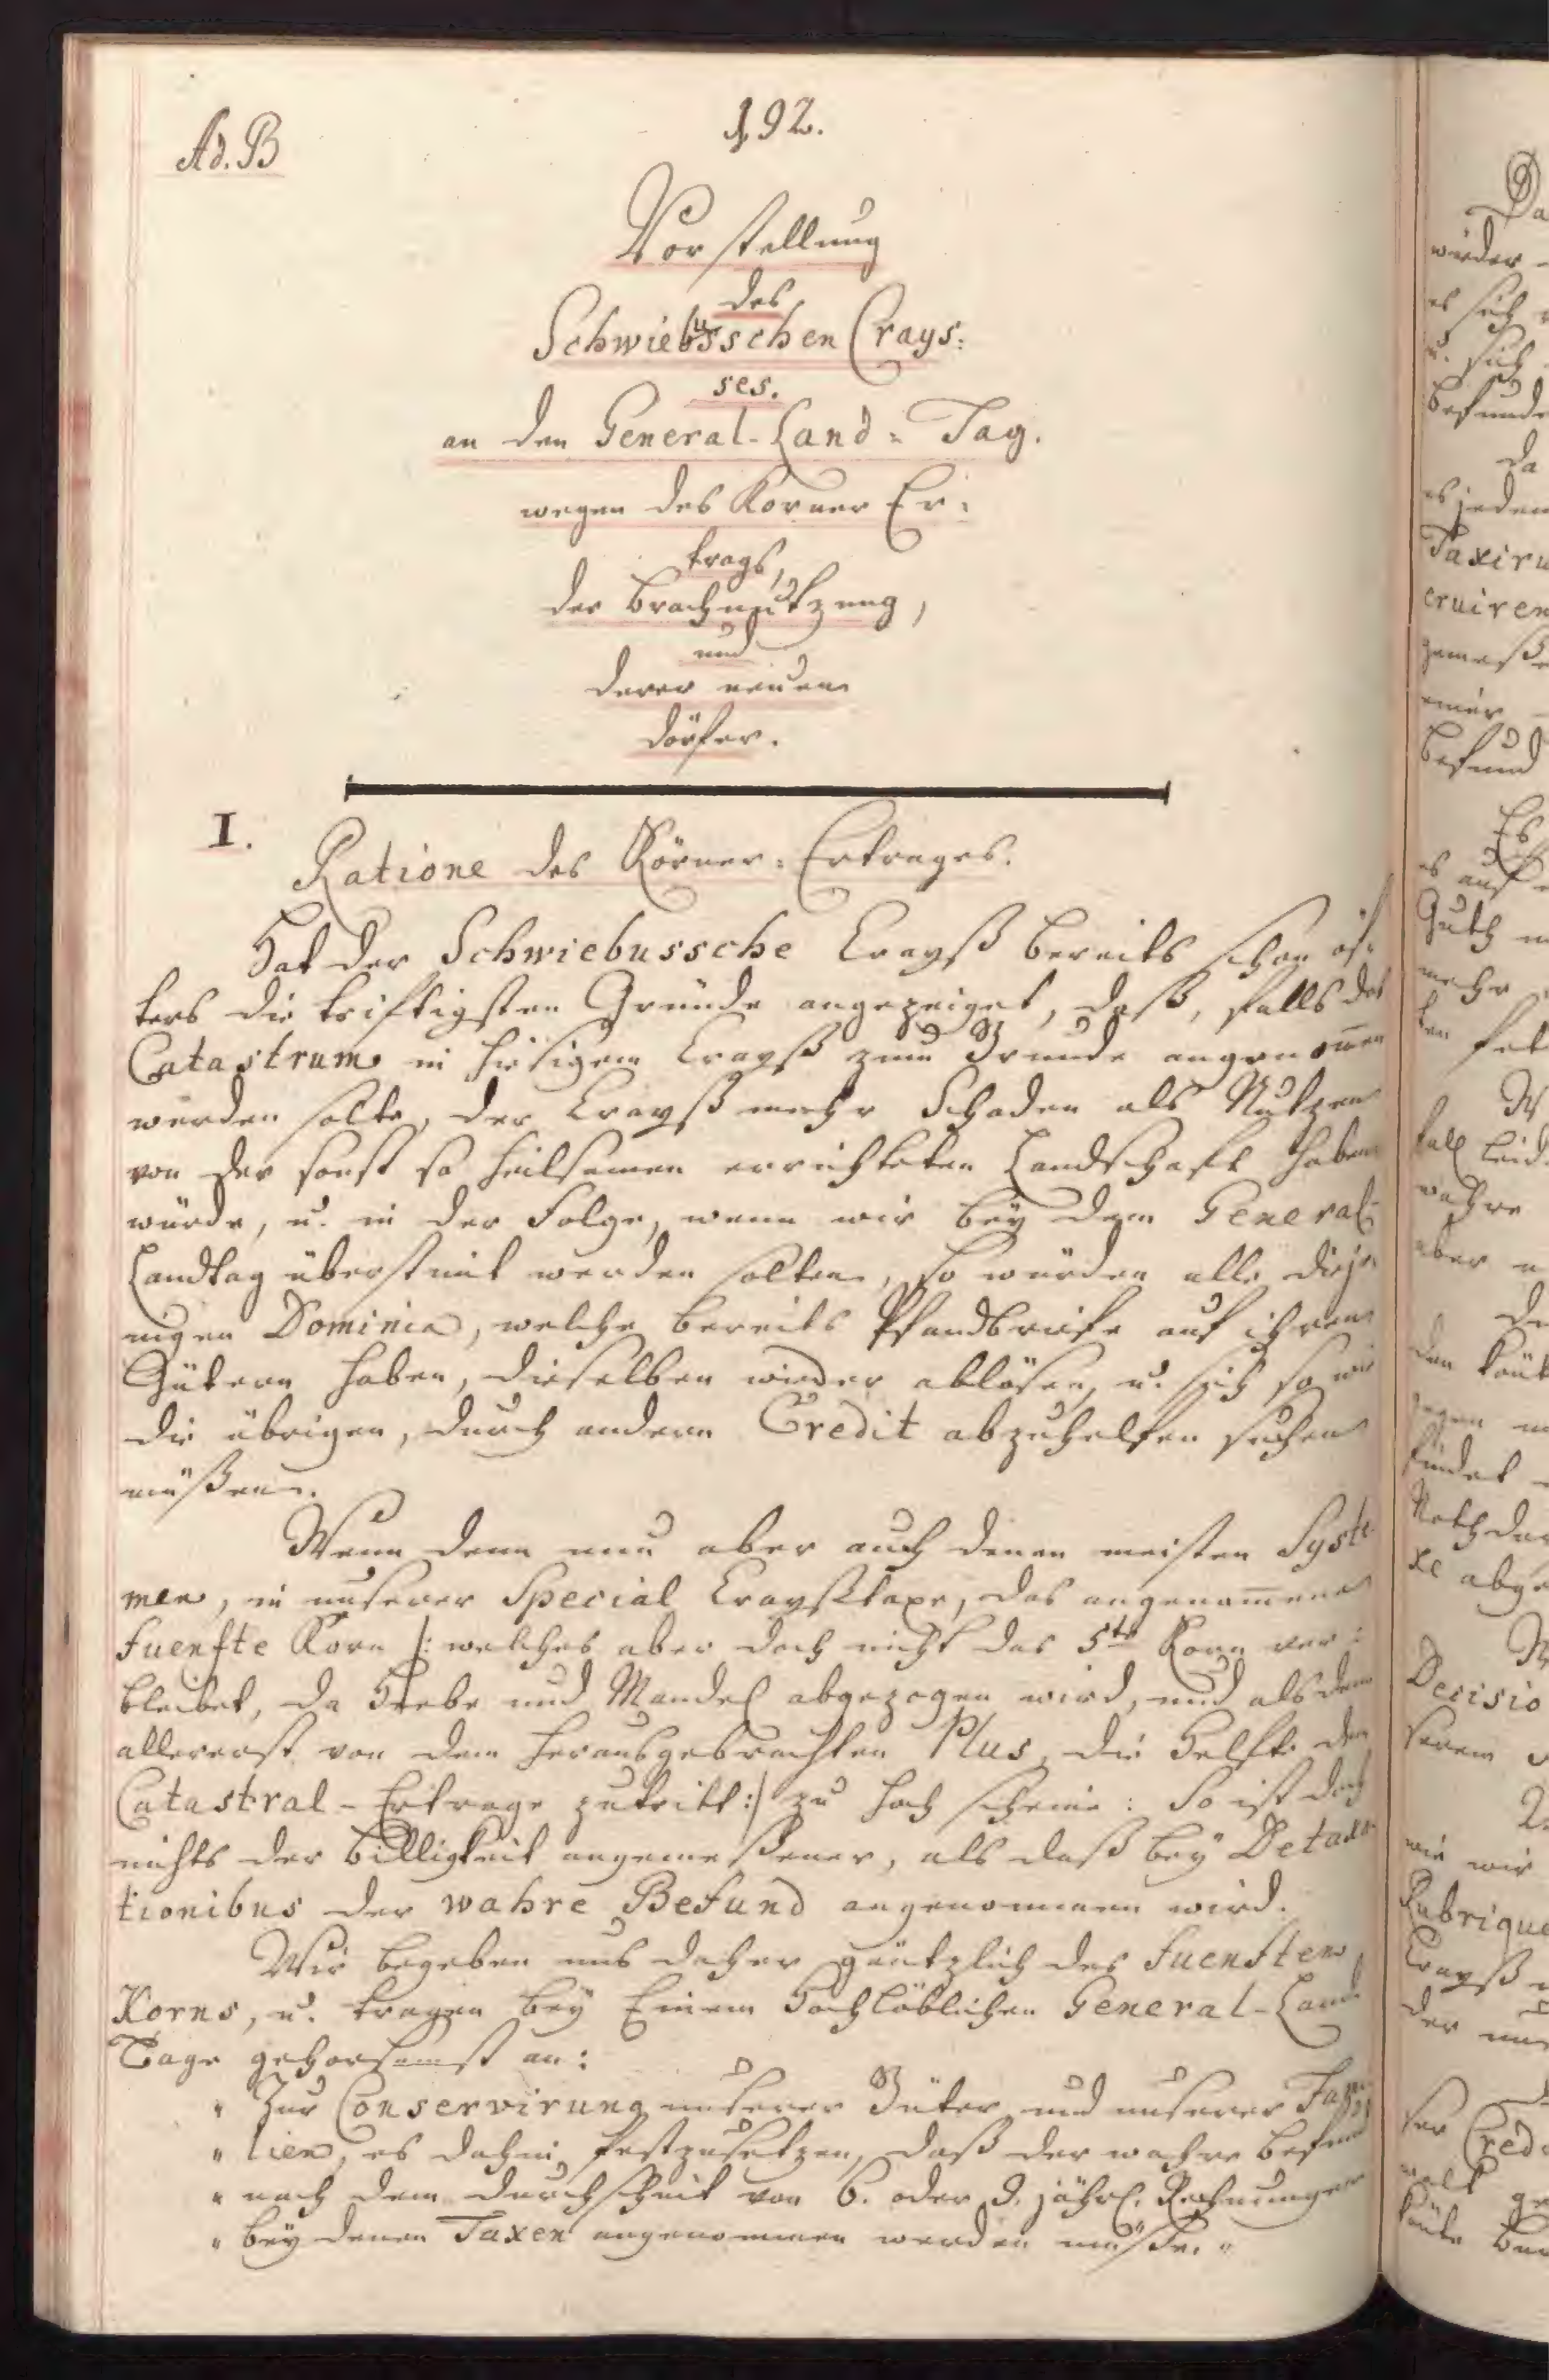 192.
Ad. B
Vorstellung
des
Schwiebusschen Crays:
ses.
an den General-Land= Tag.
wegen des Körner Er:
trags,
der Brachnutzung,
und
derer neuen
Dörfer.
I.
Ratione des Körner=Ertrages.
Hat der Schwiebussche Crayß bereits schon öf:
ters die triftigsten Gründe angezeiget, daß, falls das
Catastrum in hiesigem Crayß zum Grunde angenom̅en
werden solte, der Crayß mehr Schaden als Nutzen
von der sonst so heilsamen errichteten Landschaft haben
würde, u. in der Folge, wenn wir bey dem General-
Landtag überstimt werden solten, so würden alle dieje-
nigen Dominia, welche bereits Pfandbriefe auf ihren
Gütern haben, dieselben wieder ablösen, u. sich so wie
die übrigen, durch andern Credit abzuhelfen suchen
müßen.
Wenn denn nun aber auch denen meisten Syste
men, in unserer Special Crayßtaxe, das angenom̅ene
fuenfte Korn /: welches aber doch nicht das 5te Korn ver:
bleibet, da Hebe und Mandel abgezogen wird, und alsdenn
allererst von dem herausgebrachten Plus, die Helfte dem
Catastral-Ertrage zutritt :/ zu hoch scheine: So ist doch
nichts der Billigkeit angemeßener, als daß bey Detaxa
tionibus der wahre Befund angenommen wird.
Wir begeben uns daher gäntzlich des fuenften
Korns, u. tragen bey Einem Hochlöblichen General-Land
Tage gehorsamst an:
" Zur Conservirung unserer Güter und unserer Fami
" lien, es dahin festzusetzen, daß der wahre Befund
" nach dem Durchschnit von 6. oder 9. jährl. Rechnungen
" bey denen Taxen angenommen werden müße. "